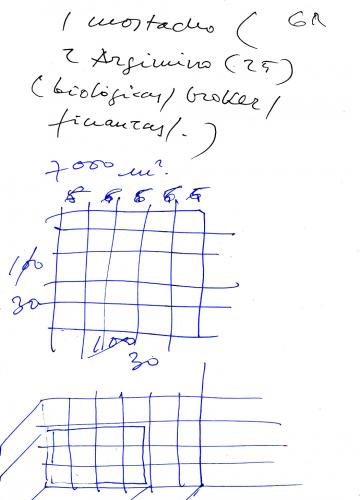 1 mostacho ( GR
2 Argimino (25)
(biológicas/broker/
finanzas/.)
7000 m².
5 5 5 5 5
100
30
100
30